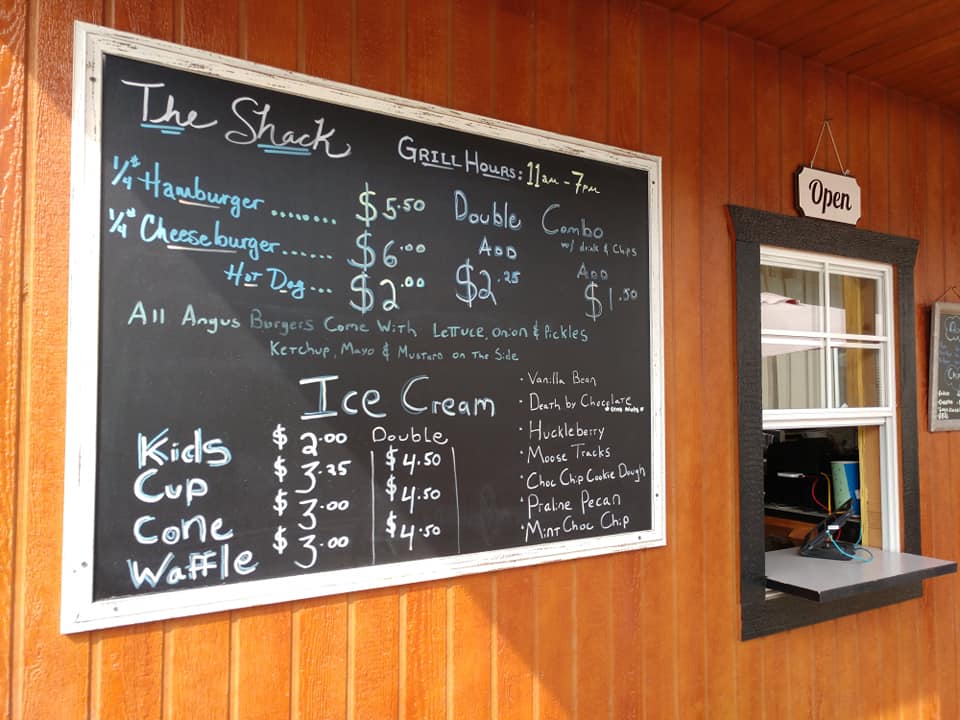 The Shack
Grill Hours: 11am - 7pm
1/4# Hamburger ......... $5.50
1/4# Cheeseburger...... $6.00
Hot Dog... $2.00
Double
Add
$2.25
Combo
w/ drink & Chips
Add
$1.50
All Angus Burgers Come With Lettuce, Onion & Pickles
Ketchup, Mayo & Mustard on the Side
Ice Cream
Kids $2.00
Cup $3.25
Cone $3.00
Waffle $3.00
Double
$4.50
$4.50
$4.50
· Vanilla Bean
· Death by Chocolate
· Huckleberry
· Moose Tracks
· Choc Chip Cookie Dough
· Praline Pecan
· Mint Choc Chip
Open